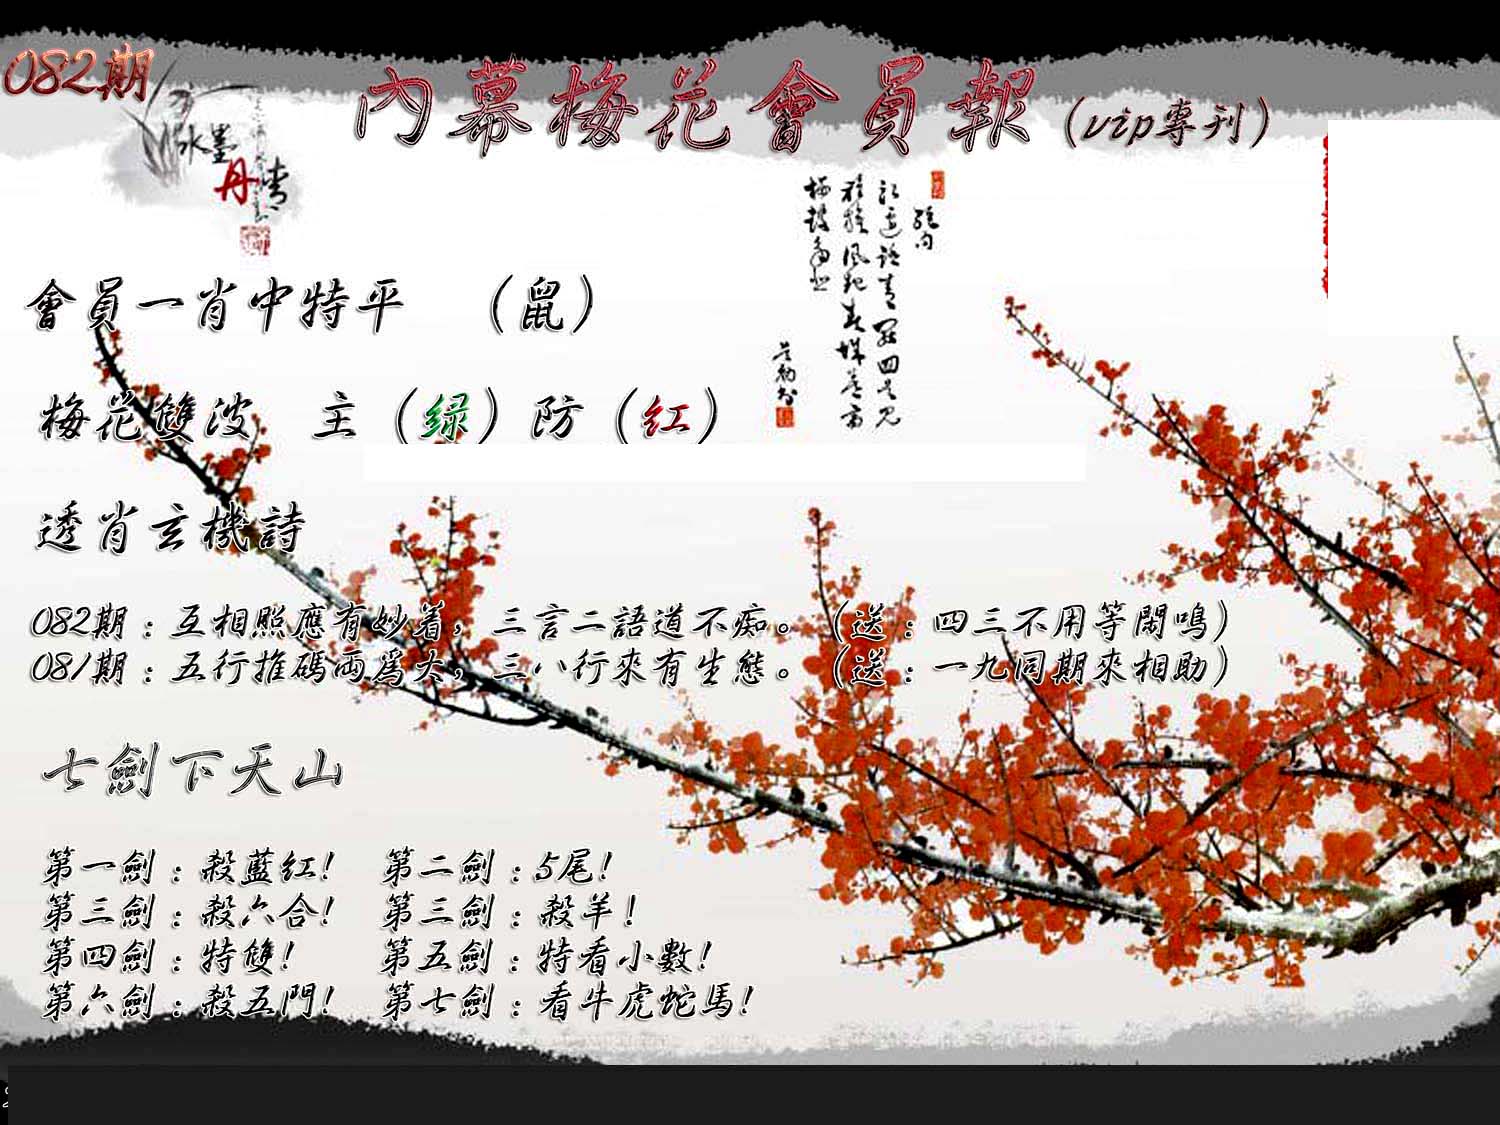 082期
內幕梅花會員報（vip專刊）
水墨
丹青
會員一肖中特平　（鼠）
梅花雙波　主（绿）防（红）
透肖玄機詩
082期：互相照應有妙着，三言二語道不痴。（送：四三不用等閑鳴）
081期：五行推碼両為大，三八行來有生態。（送：一九同期來相助）
七劍下天山
第一劍：殺藍红！　第二劍：5尾！
第三劍：殺六合！　第三劍：殺羊！
第四劍：特雙！　第五劍：特看小數！
第六劍：殺五門！　第七劍：看牛虎蛇馬！